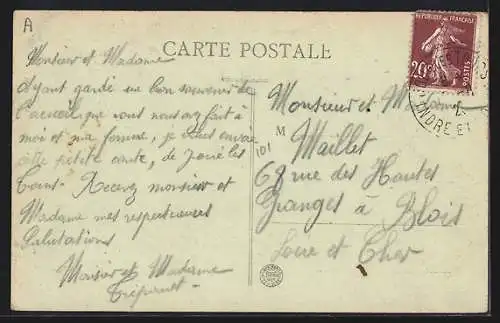 A
CARTE POSTALE
REPUBLIQUE FRANÇAISE
20c
POSTES
INDRE ET
Monsieur et Madame
Ayant gardé un bon souvenir de
l'accueil que vous nous avez fait à
moi et ma femme, je vous envoie
cette petite carte, de Joué les
Tours. Recevez monsieur et
Madame mes respectueuses
Salutations
Monsieur et Madame
Monsieur et Madame
M
Maillet
101
68 rue des Hautes
Granges à Blois
Loir et Cher